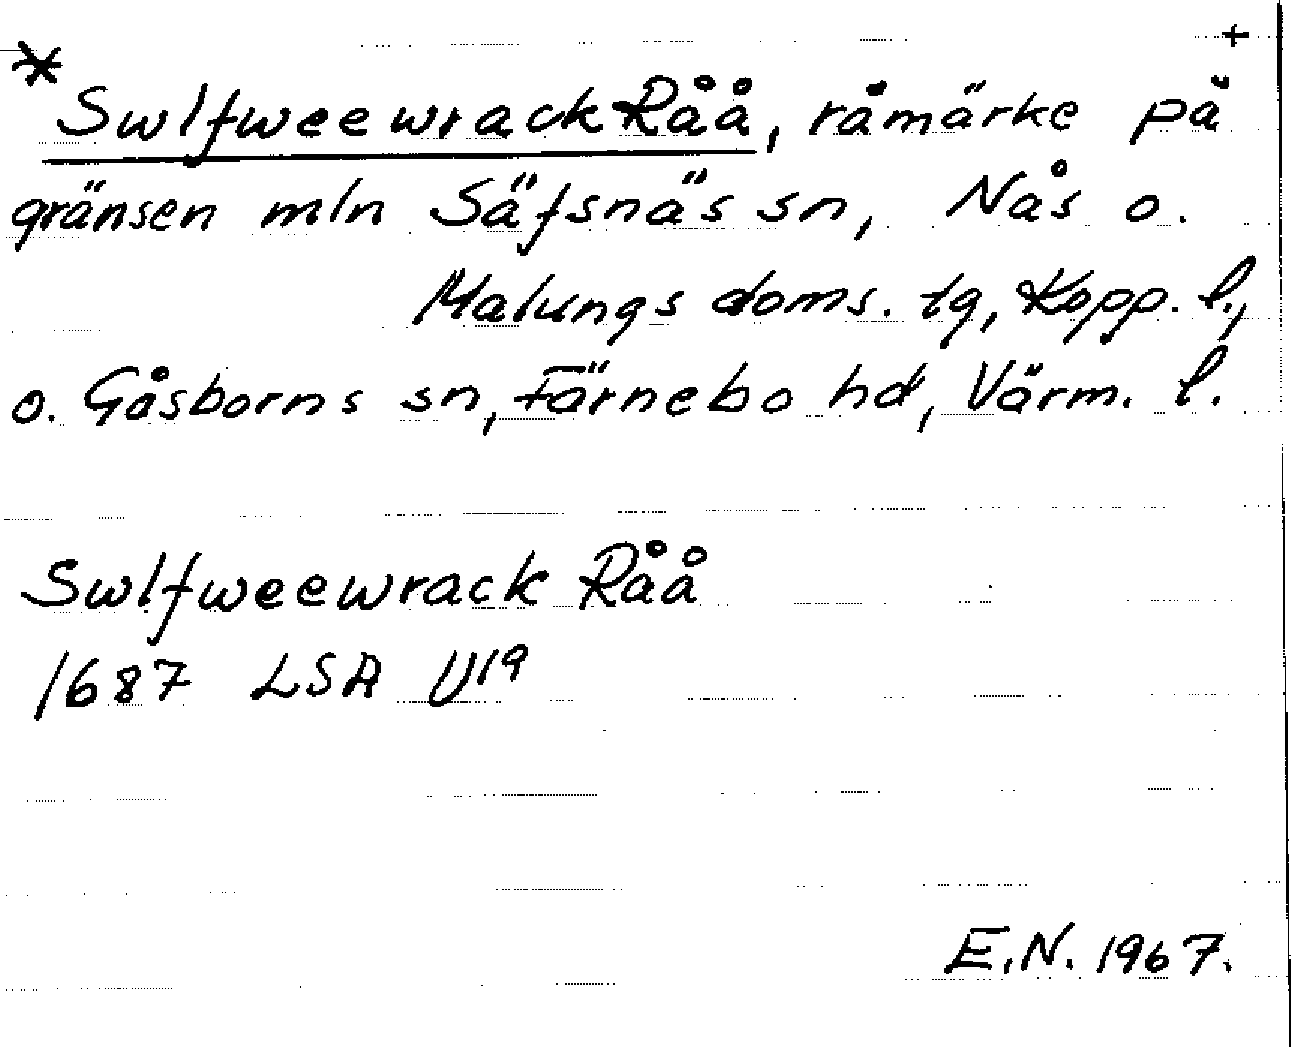 * +
Swlfweewrack Råå, råmärke på
gränsen mln Säfsnäs sn, Nås o.
Malungs doms. tg, Kopp. l.,
o. Gåsborns sn, Färnebo hd, Värm. l.
Swlfweewrack Råå
1687 LSA U19
E.N. 1967.